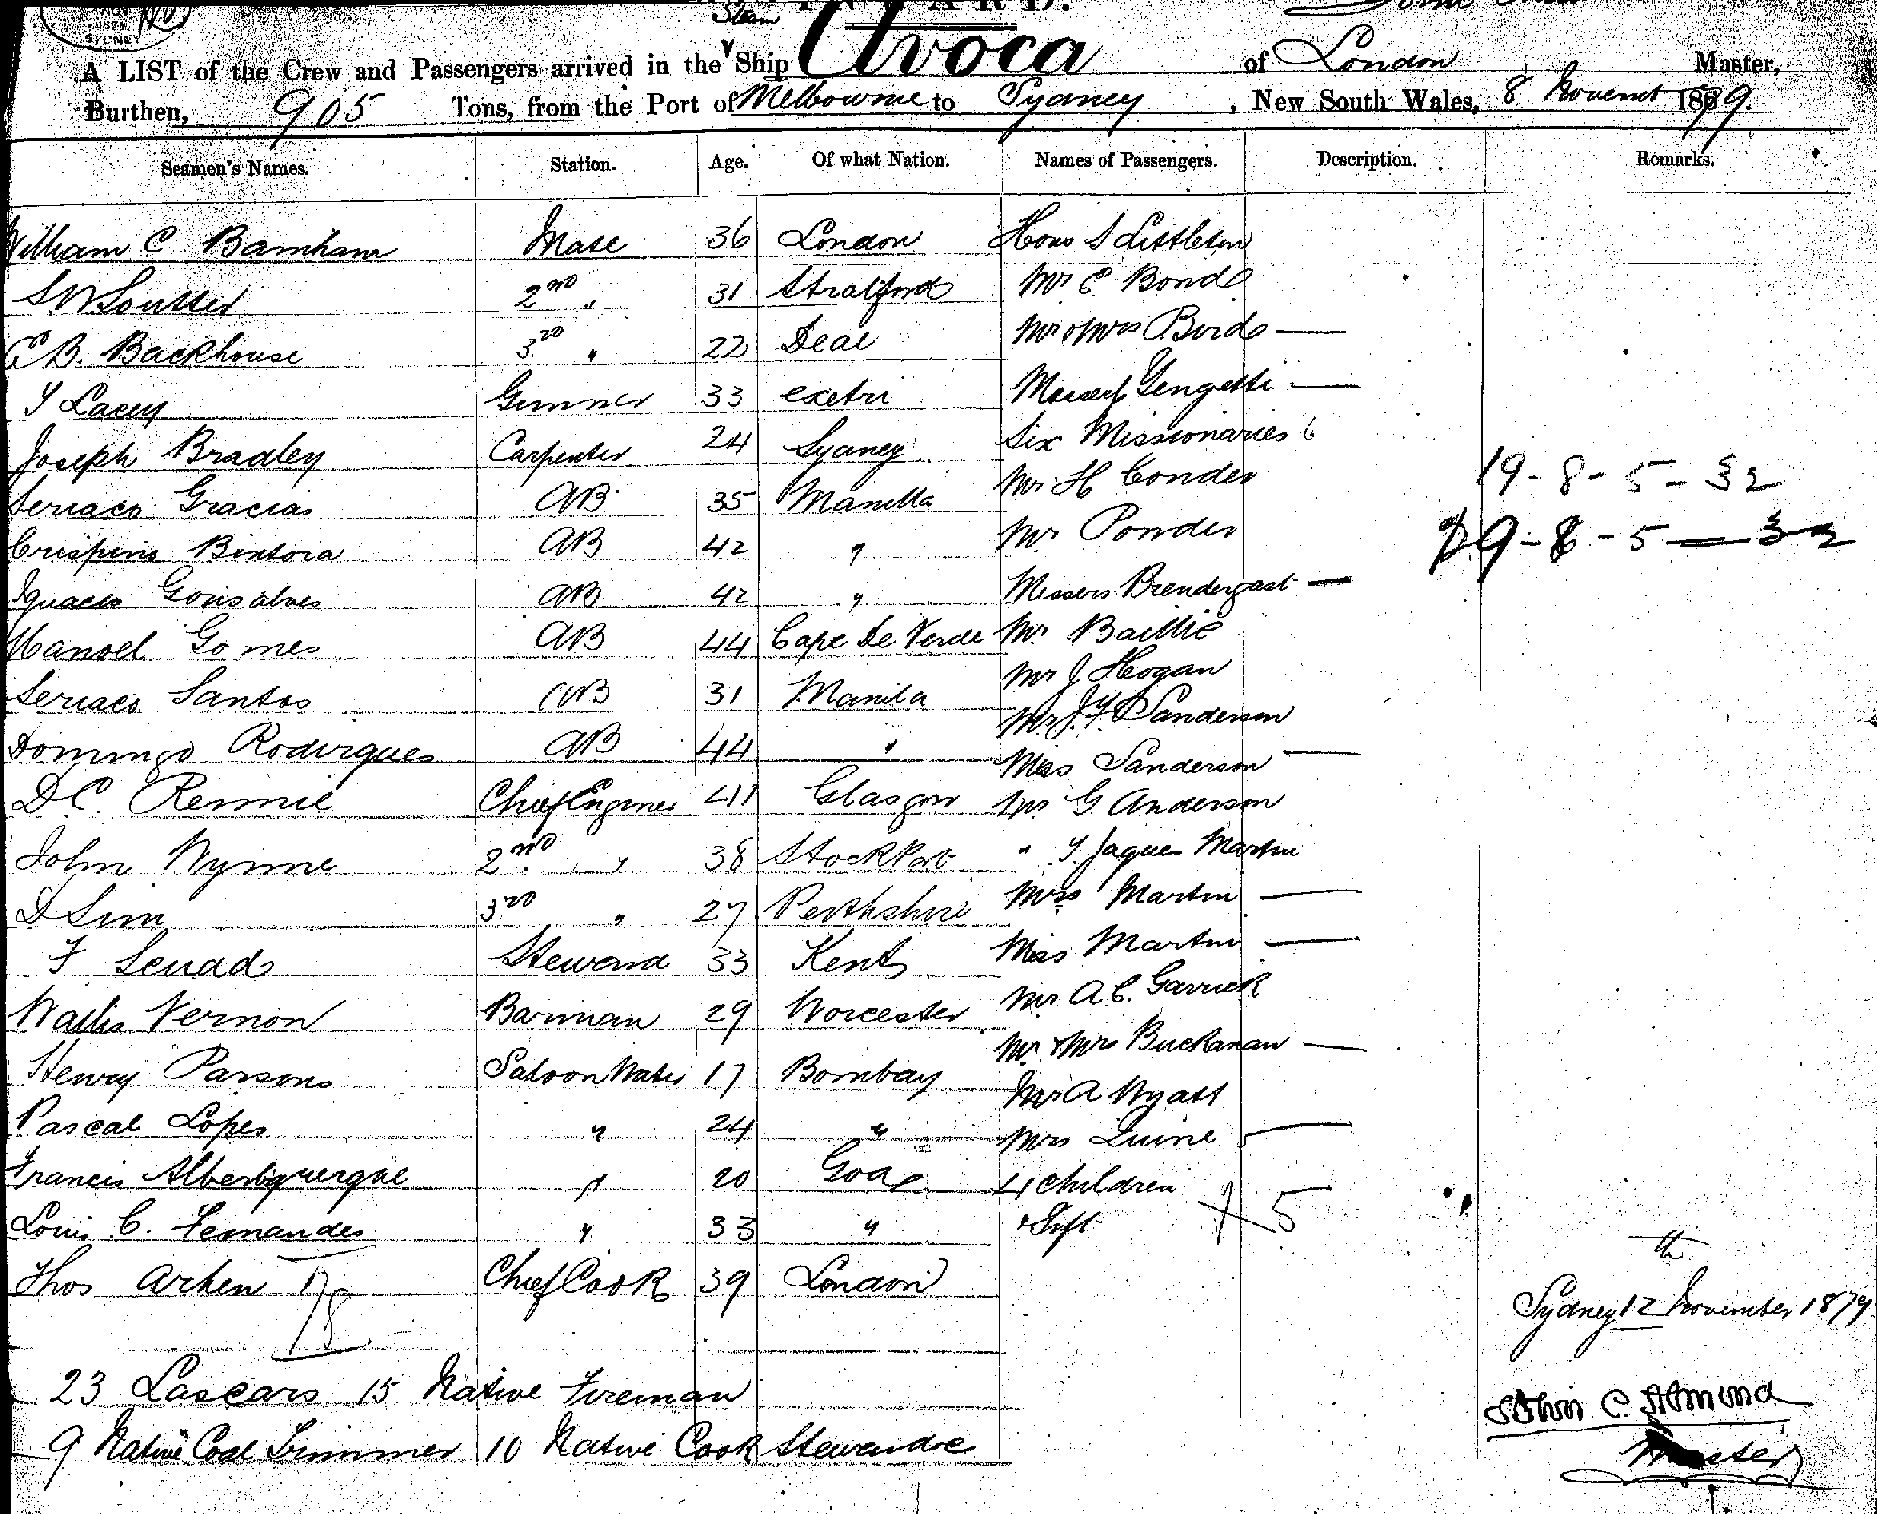 SYDNEY
Steam
A LIST of the Crew and Passengers arrived in the Ship Avoca of London Master,
Burthen, 905 Tons, from the Port of Melbourne to Sydney, New South Wales, 8 November 1879.
Seamen's Names. Station. Age. Of what Nation. Names of Passengers. Description. Remarks.
William C Barnham Mate 36 London Hons S Littleton
S W Soutter 2nd " 31 Stratford Mr C Bond
B. Backhouse 3rd " 22 Deal Mr & Mrs Bird —
Lacey Gunner 33 exeter Gengetti —
Joseph Bradley Carpenter 24 Sydney Six Missionaries 6
Seriaco Gracias AB 35 Manilla Mr H Conder
19-8-5-32
Crispino AB 42 " Mr Ponder
29-8-5-32
Ignacio Gonsalves AB 42 " Messrs Brendergast —
Manoel Gomes AB 44 Cape De Verde Mr Baillie
Seriaco Santos AB 31 Manila Mr J Hogan
Mr J.Y. Sanderson
Domingo Rodirques AB 44 " Miss Sanderson —
D C. Rennie Chief Engineer 41 Glasgow Mr G Anderson
John Wynne 2nd " 38 Stockport " Y. Jaques Martin
D Sim 3rd " 27 Perthshire Mrs Martin —
F Steward 33 Kent Miss Martin —
Walter Vernon Barman 29 Worcester Mr A C. Garrick
Mr & Mrs Buckanan —
Henry Parsons Saloon Waiter 17 Bombay Mr A Wyatt
Pascal Lopes " 24 " Mrs Quine —
Francis Alberbquerque " 20 Goa 4 children
Louis C. Fernandes " 33 " 5
Thos Arken Chief Cook 39 London
78
Sydney 12th November 1879
23 Lascars 15 Native Fireman
John C. Almond
9 Native Coal Trimmer 10 Native Cook Stewards &c
Master